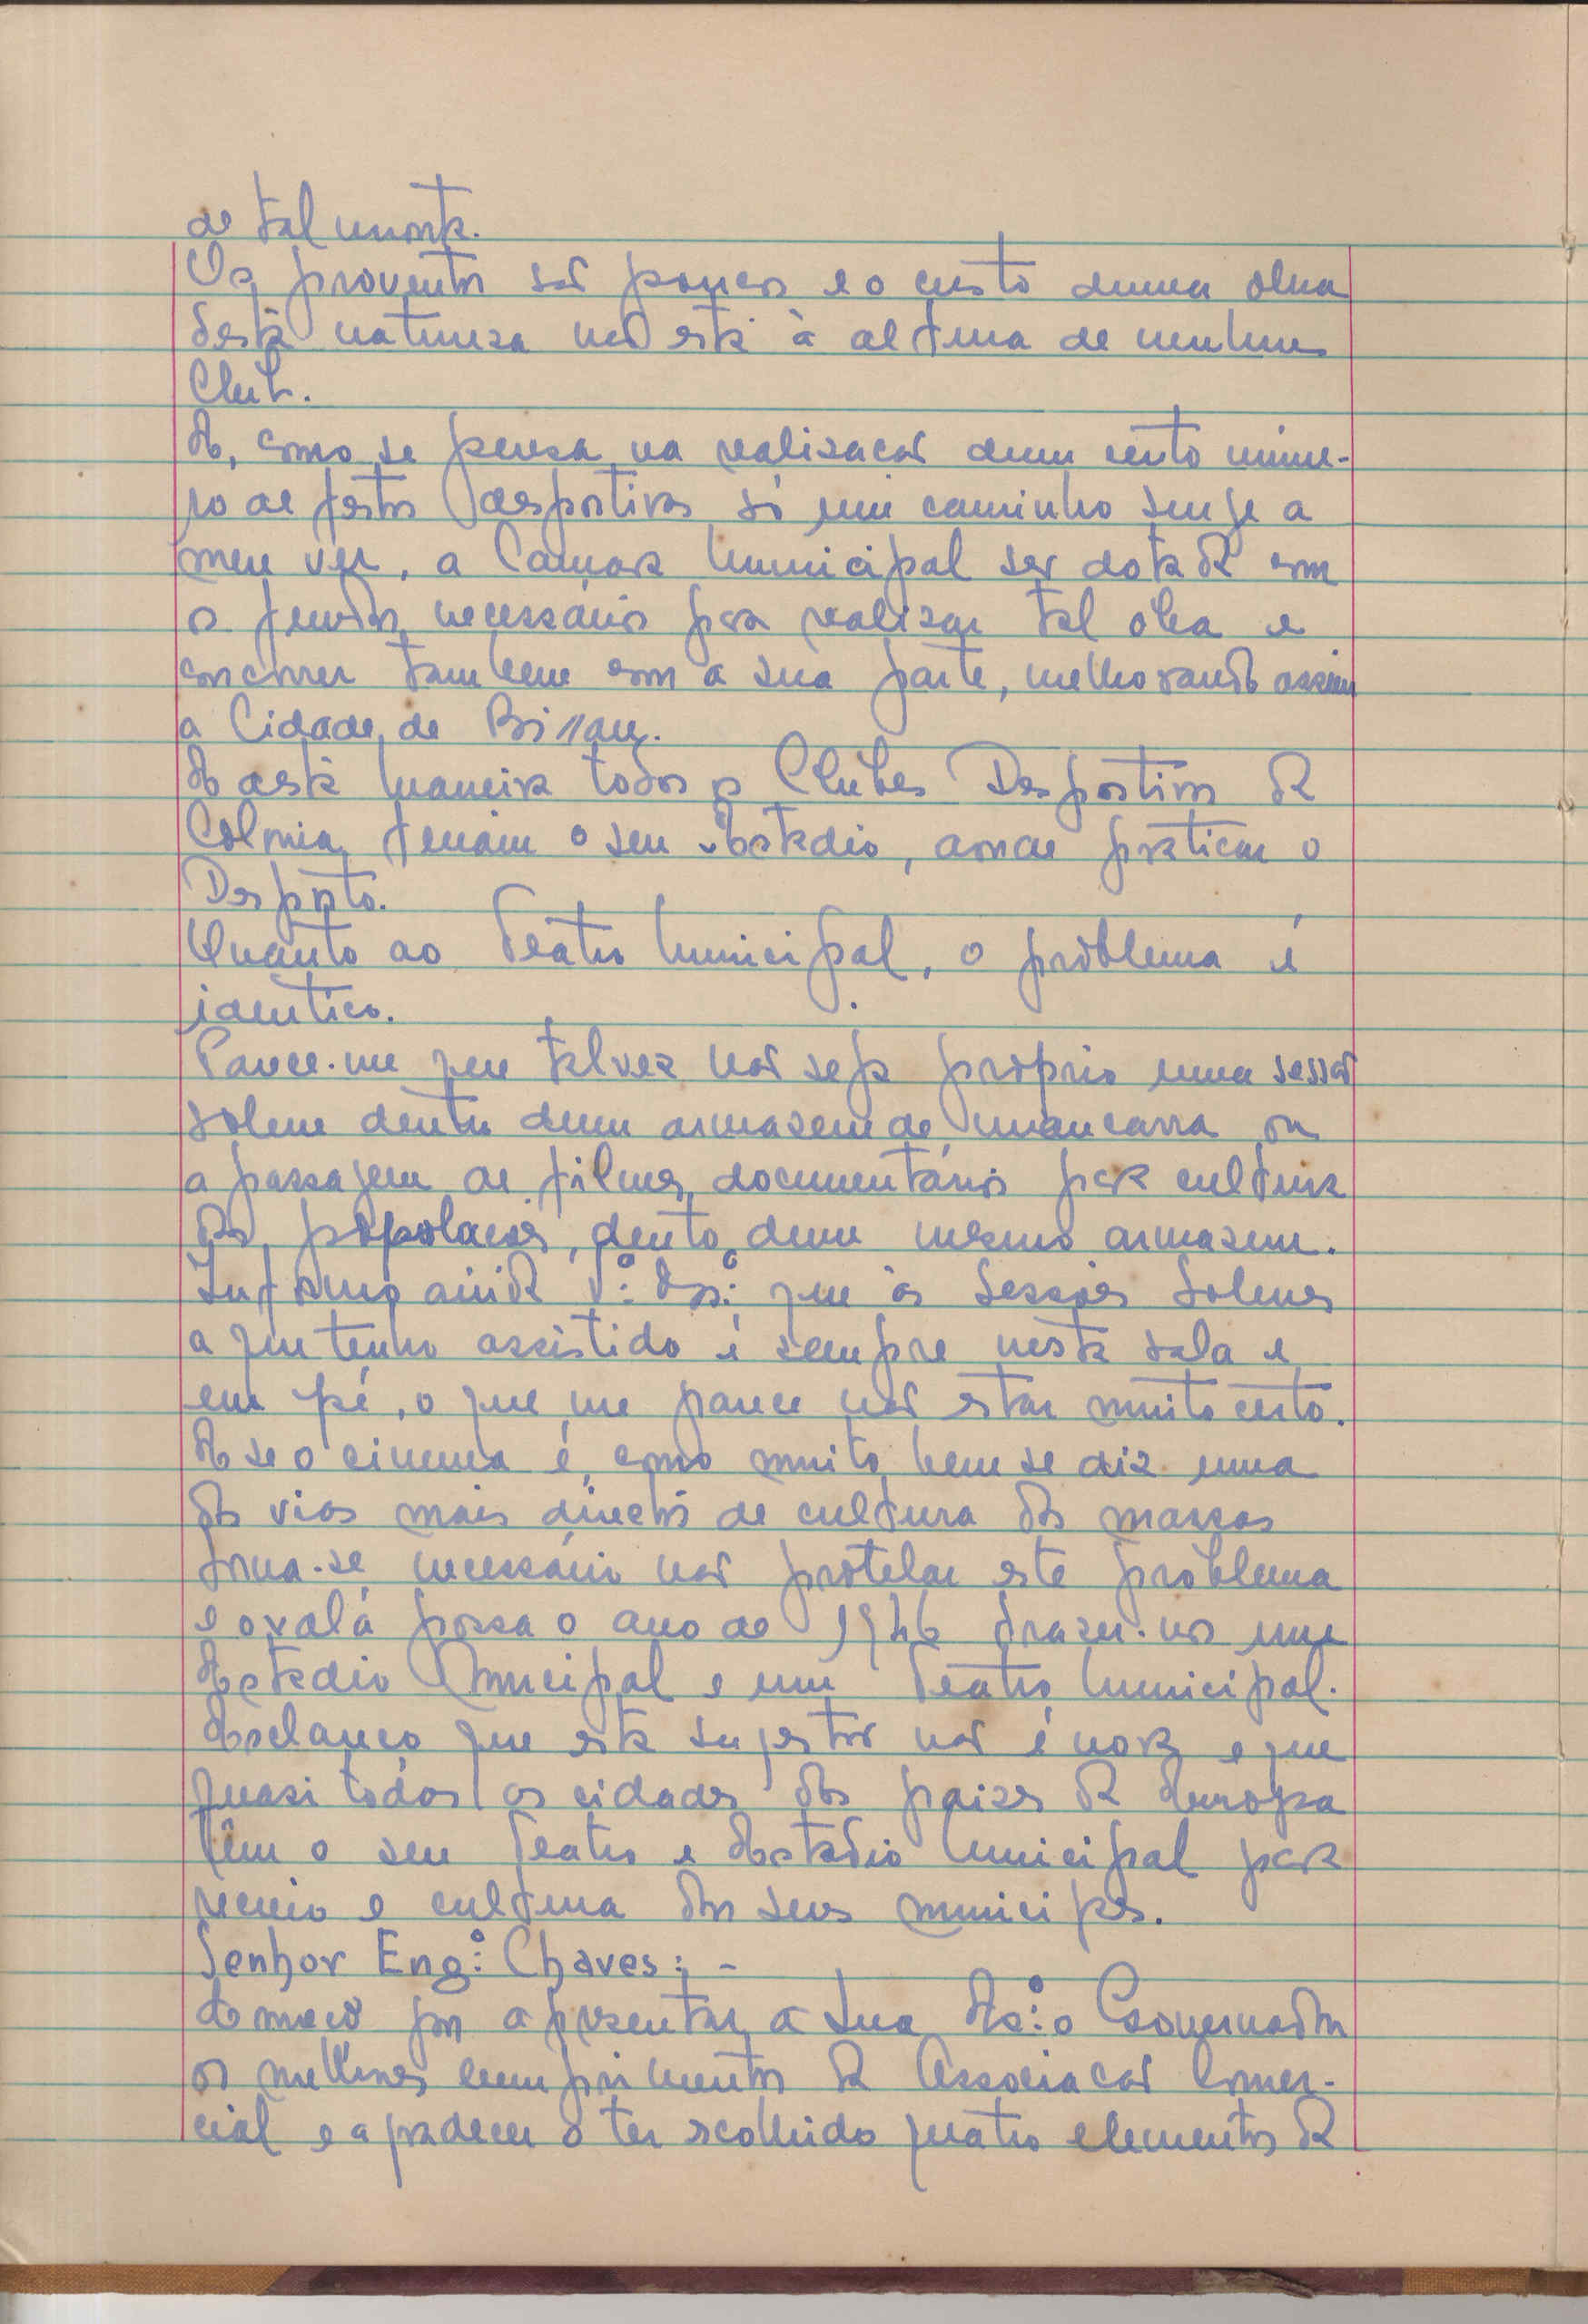 de tal monta.
Os proventos são poucos e o custo duma obra
desta natureza não está à altura de nenhum
Club.
E, como se pensa na realização dum certo núme-
ro de festas desportivas só um caminho surge a
meu ver, a Camara Municipal ser dotada com
os fundos necessários para realizar tal obra e
concorrer tambem com a sua parte, melhorando assim
a Cidade de Bissau.
E desta maneira todos os Clubes Desportivos da
Colonia, teriam o seu Estadio, aonde praticar o
Desporto.
Quanto ao Teatro Municipal, o problema é
identico.
Parece-me que talvez não seja próprio uma sessão
solene dentro dum armazem de mancarra ou
a passagem de filmes documentários para cultura
das populações, dentro dum mesmo armazem.
Informo ainda V.ª Ex.ª que às Sessões Solenes
a que tenho assistido é sempre nesta sala e
em pé, o que me parece não estar muito certo.
E se o cinema é, como muito bem se diz uma
das vias mais directas de cultura das massas
torna-se necessário não protelar este problema
e oxalá possa o ano de 1946 trazer-nos um
Estadio Municipal e um Teatro Municipal.
Esclareço que esta sugestão não é nova e que
quasi todas as cidades dos paizes da Europa
têm o seu Teatro e Estadio Municipal para
recreio e cultura dos seus municipes.
Senhor Eng.º Chaves: -
Começo por apresentar a Sua Ex.ª o Governador
os melhores cumprimentos da Associação Comer-
cial e agradecer o ter escolhido quatro elementos da